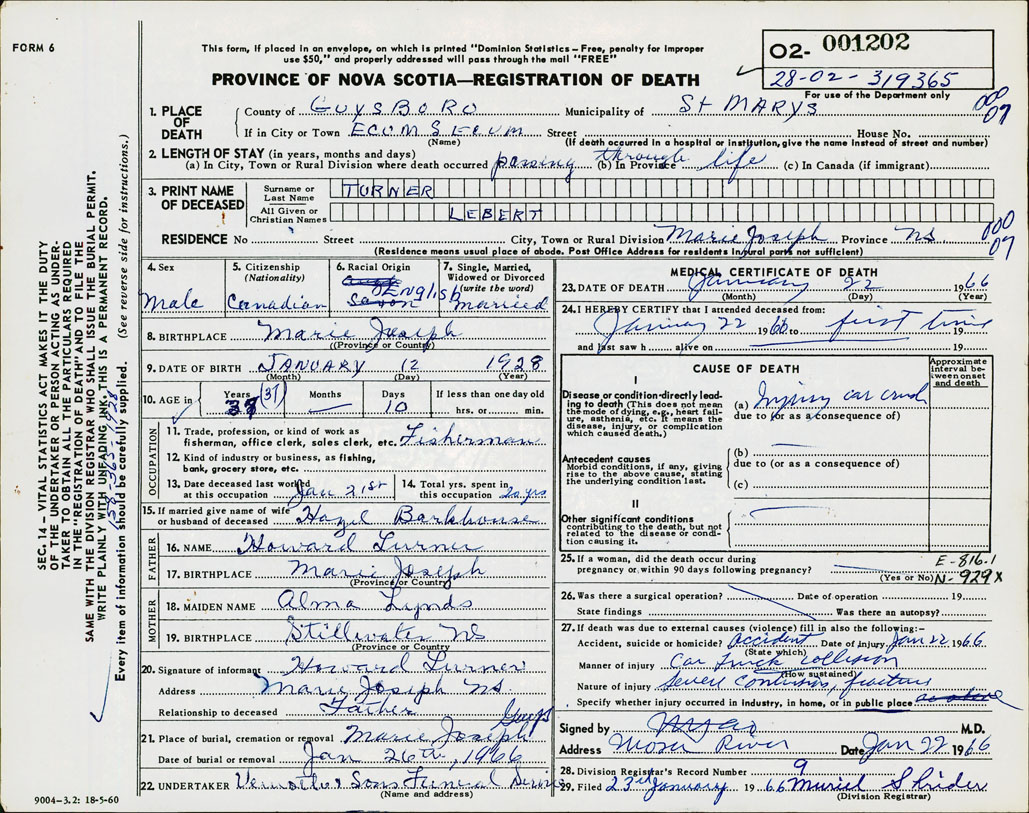 FORM 6
This form, if placed in an envelope, on which is printed "Dominion Statistics – Free, penalty for improper
use $50," and properly addressed will pass through the mail "FREE"
PROVINCE OF NOVA SCOTIA—REGISTRATION OF DEATH
O2- 001202
28-02-319365
For use of the Department only
1. PLACE OF DEATH
County of GUYSBORO Municipality of St MARYS
000
07
If in City or Town ECUM SECUM Street House No.
(Name) (If death occurred in a hospital or institution, give the name instead of street and number)
2. LENGTH OF STAY (in years, months and days)
(a) In City, Town or Rural Division where death occurred passing through (b) In Province life (c) In Canada (if immigrant)
3. PRINT NAME OF DECEASED
Surname or Last Name TURNER
All Given or Christian Names LEBERT
RESIDENCE No Street City, Town or Rural Division Marie Joseph Province NS
000
07
(Residence means usual place of abode. Post Office Address for residents in rural parts not sufficient)
4. Sex
Male
5. Citizenship
(Nationality)
Canadian
6. Racial Origin
ENglish
7. Single, Married,
Widowed or Divorced
(write the word)
married
8. BIRTHPLACE Marie Joseph
(Province or Country)
9. DATE OF BIRTH JANUARY 12 1928
(Month) (Day) (Year)
10. AGE in Years 38 (37) Months Days 10 If less than one day old
hrs. or min.
OCCUPATION
11. Trade, profession, or kind of work as
fisherman, office clerk, sales clerk, etc. Fisherman
12. Kind of industry or business, as fishing,
bank, grocery store, etc.
13. Date deceased last worked
at this occupation Jan 21st
14. Total yrs. spent in
this occupation 20 yrs
15. If married give name of wife
or husband of deceased Hazel Barkhouse
FATHER
16. NAME Howard Turner
17. BIRTHPLACE Marie Joseph
(Province or Country)
MOTHER
18. MAIDEN NAME Alma Lynds
19. BIRTHPLACE Stillwater NS
(Province or Country)
20. Signature of informant Howard Turner
Address Marie Joseph NS.
Relationship to deceased Father
Guys
21. Place of burial, cremation or removal Marie Joseph
Date of burial or removal Jan 26th, 1966
22. UNDERTAKER Sons Funeral Service
(Name and address)
9004-3.2: 18-5-60
MEDICAL CERTIFICATE OF DEATH
23. DATE OF DEATH January 22 1966
(Month) (Day) (Year)
24. I HEREBY CERTIFY that I attended deceased from:
January 22 1966 to first time 19
and last saw h alive on 19
CAUSE OF DEATH
Approximate interval between onset and death
I
Disease or condition directly leading to death (This does not mean
the mode of dying, e.g., heart failure, asthenia, etc. It means the
disease, injury, or complication
which caused death.)
(a) Injury car crush
due to (or as a consequence of)
Antecedent causes
Morbid conditions, if any, giving
rise to the above cause, stating
the underlying condition last.
(b)
due to (or as a consequence of)
(c)
II
Other significant conditions
contributing to the death, but not
related to the disease or condition causing it.
25. If a woman, did the death occur during
pregnancy or within 90 days following pregnancy?
(Yes or No)
E-816.1
N-929X
26. Was there a surgical operation? Date of operation 19
State findings Was there an autopsy?
27. If death was due to external causes (violence) fill in also the following:—
Accident, suicide or homicide? accident Date of injury Jan 22 1966
(State which)
Manner of injury Car truck collision
(How sustained)
Nature of injury Severe contusions, fracture
Specify whether injury occurred in industry, in home, or in public place
Signed by M.D.
Address Moser River Date Jan 22 1966
28. Division Registrar's Record Number 9
29. Filed 23rd January 1966 Muriel
(Division Registrar)
SEC. 14 – VITAL STATISTICS ACT MAKES IT THE DUTY
OF THE UNDERTAKER OR PERSON ACTING AS UNDER-
TAKER TO OBTAIN ALL THE PARTICULARS REQUIRED
IN THE "REGISTRATION OF DEATH" AND TO FILE THE
SAME WITH THE DIVISION REGISTRAR WHO SHALL ISSUE THE BURIAL PERMIT.
WRITE PLAINLY WITH UNFADING INK. THIS IS A PERMANENT RECORD.
Every item of information should be carefully supplied. (See reverse side for instructions.)